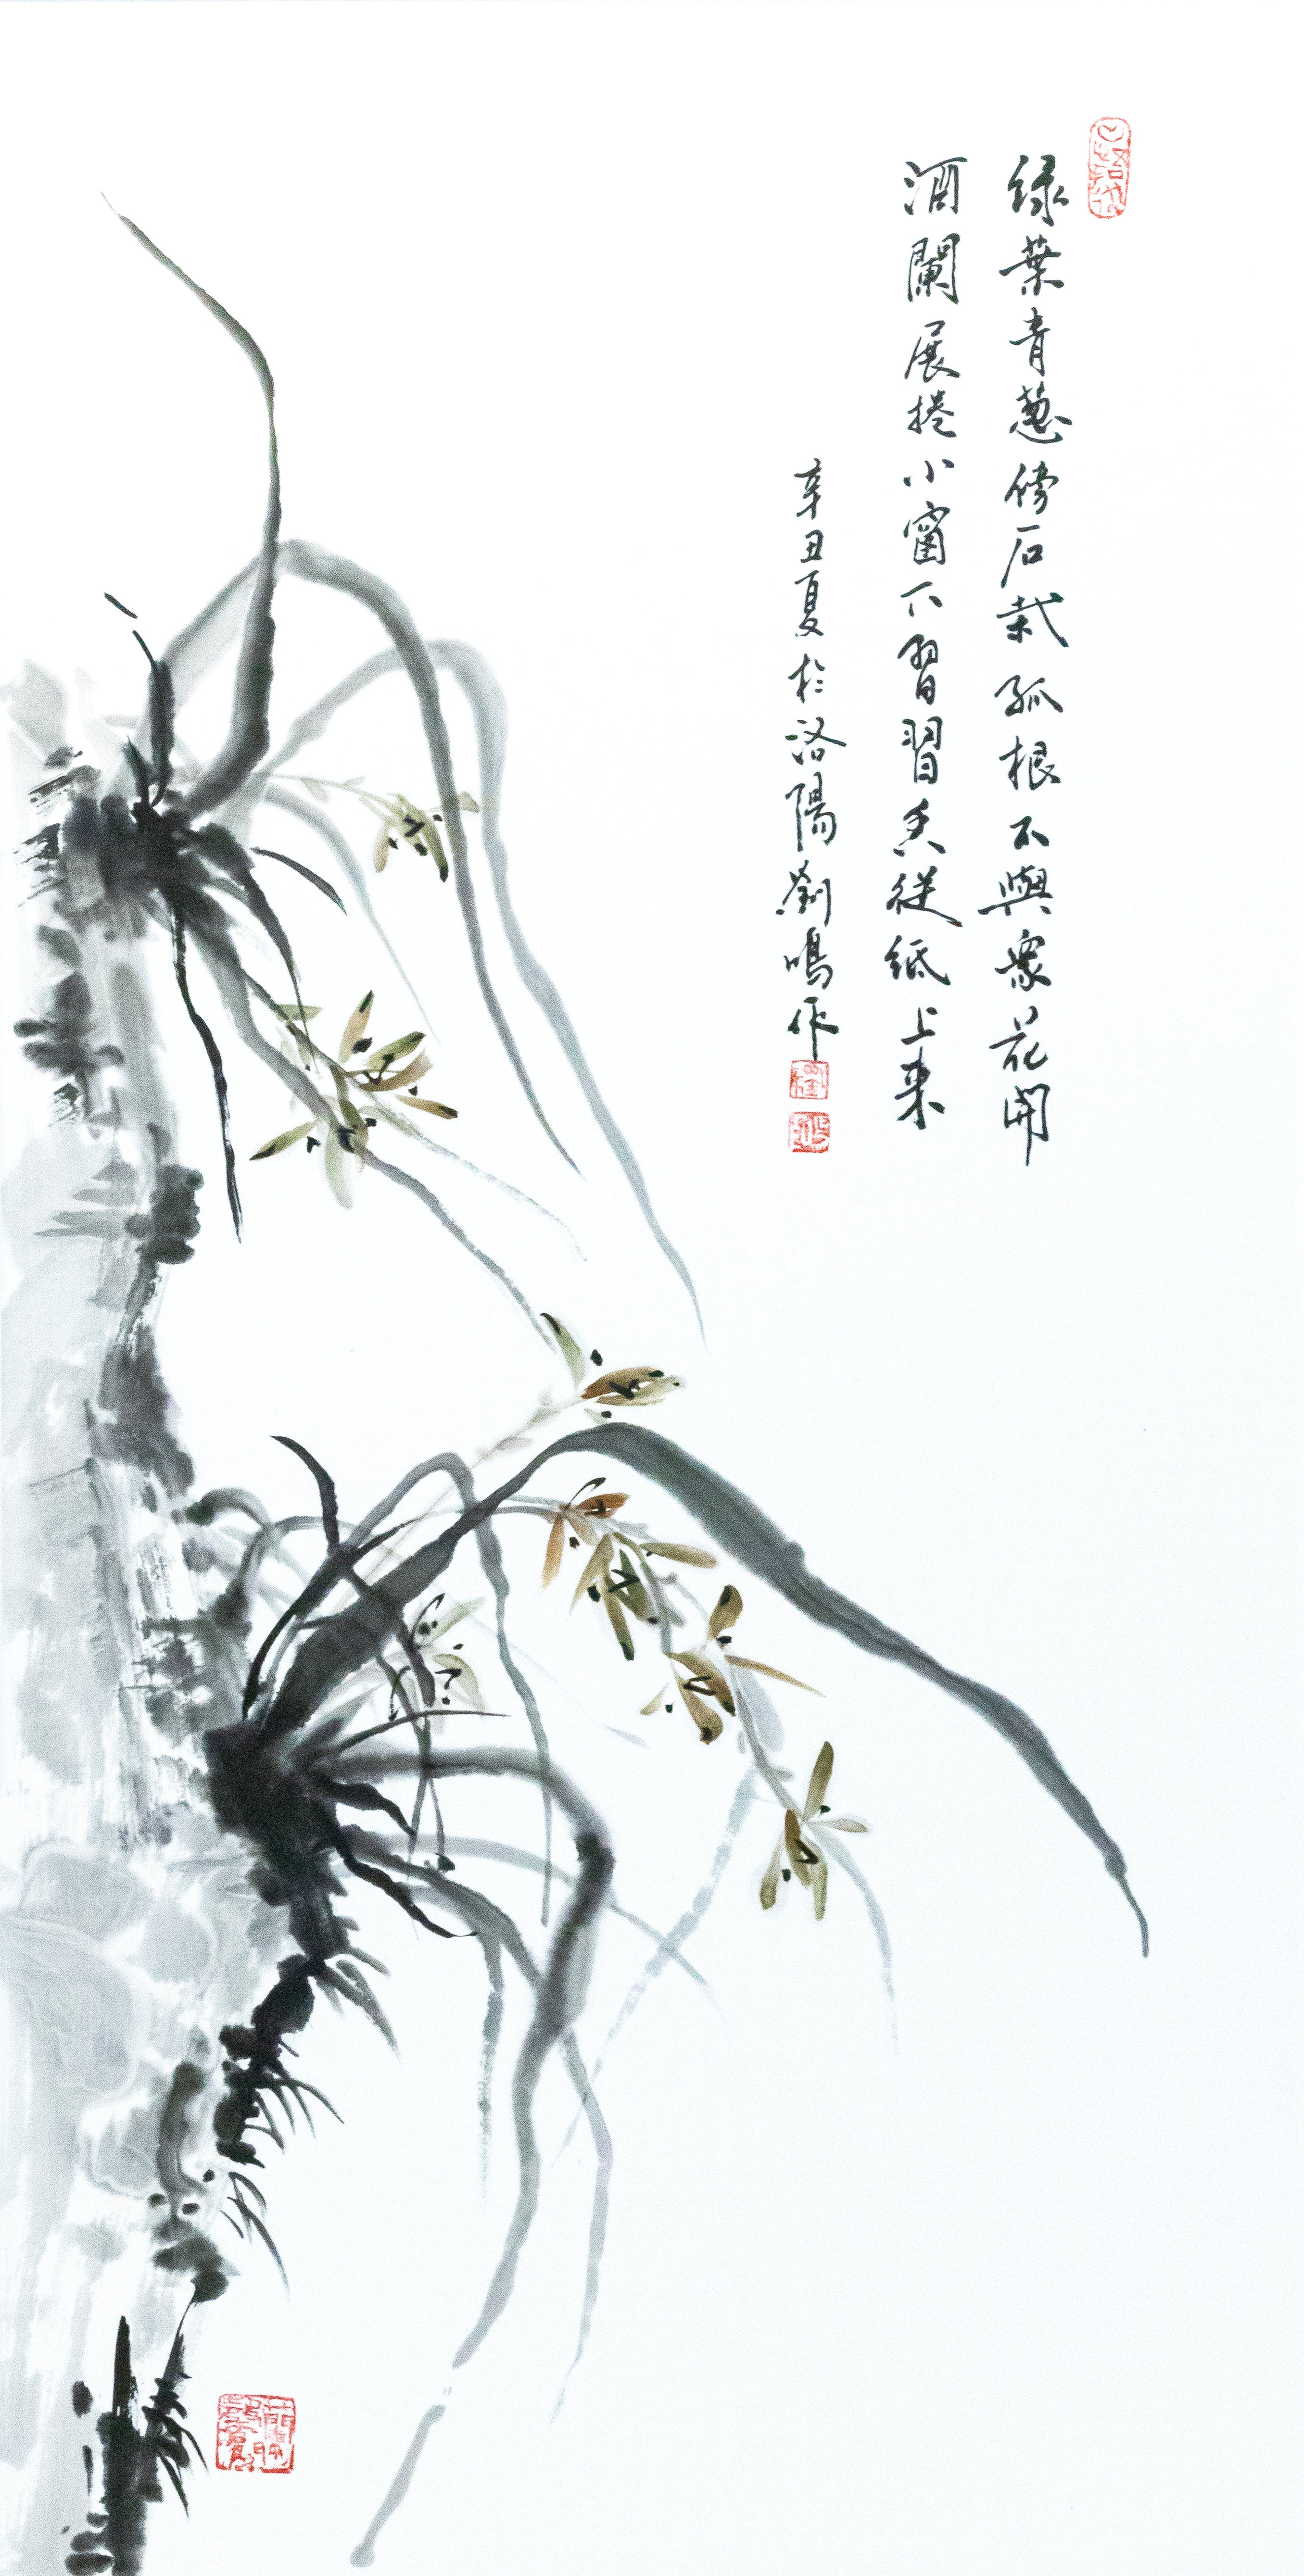 绿葉青葱傍石栽孤根不與衆花開
酒闌展捲小窗下習習香從紙上来
辛丑夏於洛陽劉鳴作